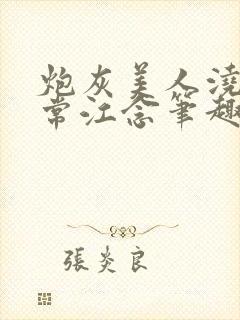 炮灰美人澆
常江念筆趣
張炎良